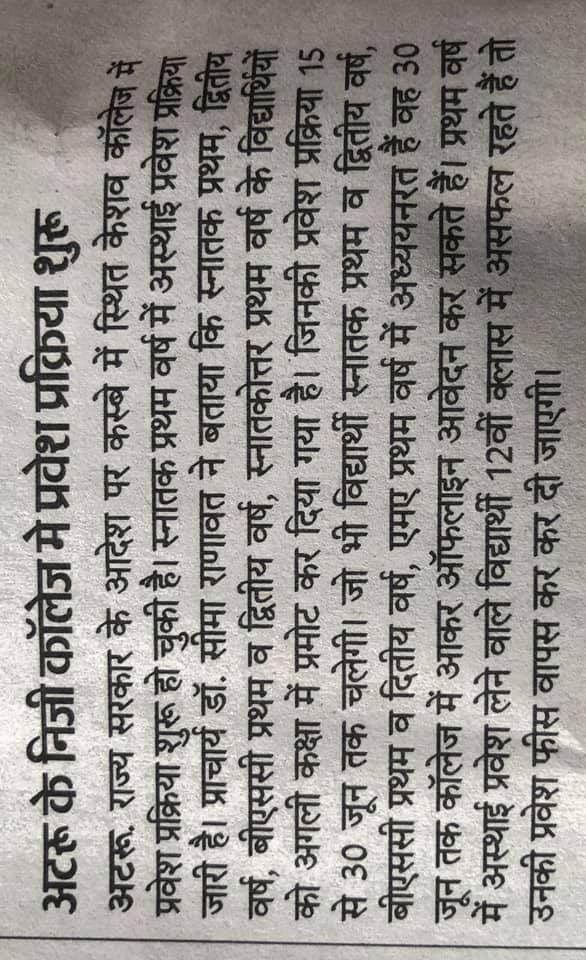 अटरू के निजी कॉलेज मे प्रवेश प्रक्रिया शुरू
अटरू. राज्य सरकार के आदेश पर कस्बे में स्थित केशव कॉलेज में
प्रवेश प्रक्रिया शुरू हो चुकी है। स्नातक प्रथम वर्ष में अस्थाई प्रवेश प्रक्रिया
जारी है। प्राचार्य डॉ. सीमा राणावत ने बताया कि स्नातक प्रथम, द्वितीय
वर्ष, बीएससी प्रथम व द्वितीय वर्ष, स्नातकोत्तर प्रथम वर्ष के विद्यार्थियों
को अगली कक्षा में प्रमोट कर दिया गया है। जिनकी प्रवेश प्रक्रिया 15
से 30 जून तक चलेगी। जो भी विद्यार्थी स्नातक प्रथम व द्वितीय वर्ष,
बीएससी प्रथम व दितीय वर्ष, एमए प्रथम वर्ष में अध्ययनरत हैं वह 30
जून तक कॉलेज में आकर ऑफलाइन आवेदन कर सकते हैं। प्रथम वर्ष
में अस्थाई प्रवेश लेने वाले विद्यार्थी 12वीं क्लास में असफल रहते हैं तो
उनकी प्रवेश फीस वापस कर कर दी जाएगी।